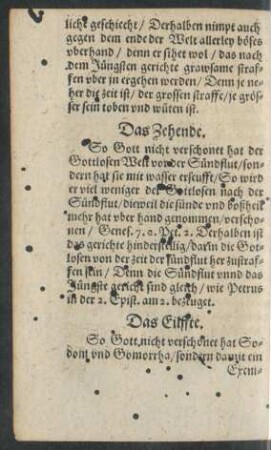 licht geschicht / Derhalben nimpt auch
gegen dem ende der Welt allerley böses
vberhand / denn er sihet wol / das nach
dem Jüngsten gerichte grawsame straf-
fen vber jn ergehen werden / Denn je ne-
her die zeit ist / der grossen straffe / je grös-
ser sein toben vnd wüten ist.
Das Zehende.
So Gott nicht verschonet hat der
Gottlosen Welt vor der Sündflut / son-
dern hat sie mit wasser erseufft / So wird
er viel weniger der Gottlosen nach der
Sündflut / dieweil die sünde vnd boßheit
mehr hat vber hand genommen / verscho-
nen / Genes. 7. 2. Pet. 2. Derhalben ist
das gerichte hinderstellig / darin die Got-
losen von der zeit der sündflut her zustraf-
fen sein / Denn die Sündflut vnnd das
Jüngste gericht sind gleich / wie Petrus
in der 2. Epist. am 2. bezeuget.
Das Eilffte.
So Gott nicht verschonet hat So-
dom vnd Gomorrha / sondern damit ein
Exem-